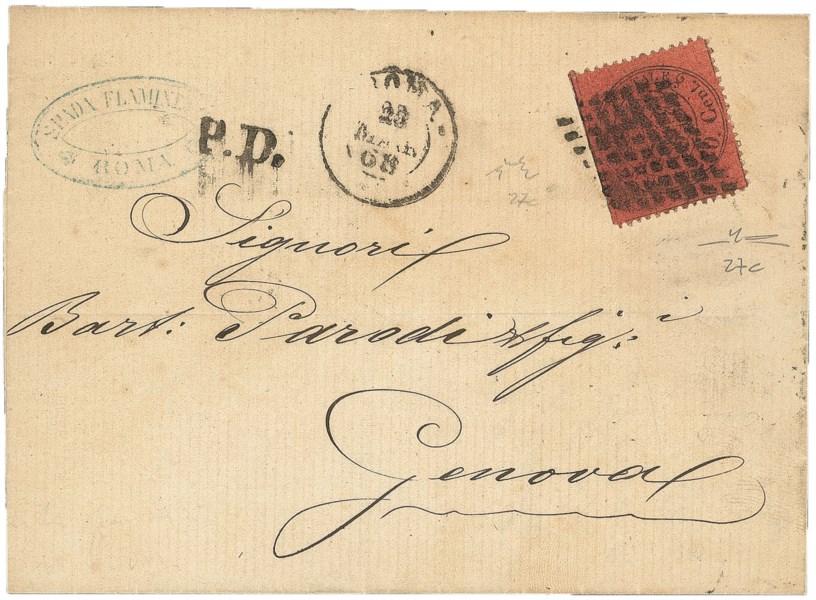 SPADA FLAMINI
ROMA
P.D.
ROMA
23
68
Cent
Signori
Bart: Parodi & fig:i
Genova
27c
27c